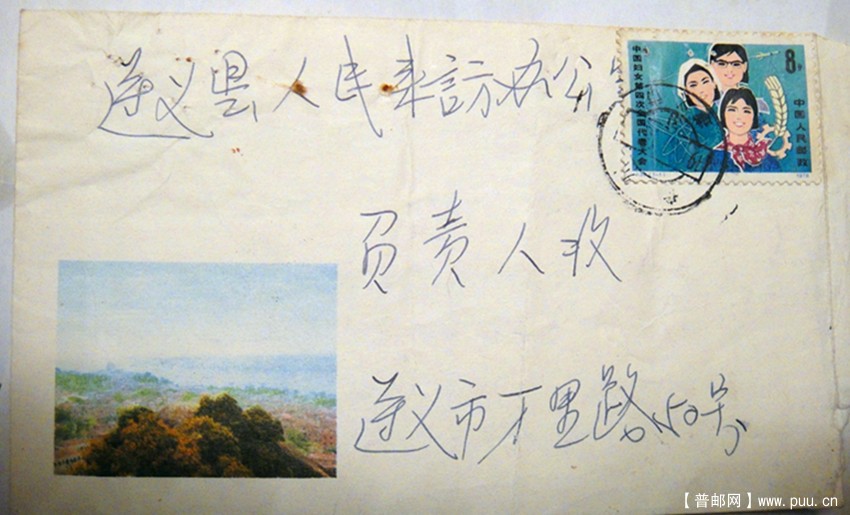 遵义县人民来访办公
8分
中国妇女第四次全国代表大会
中国人民邮政
1978
负责人收
遵义市万里路50号
【普邮网】www.puu.cn